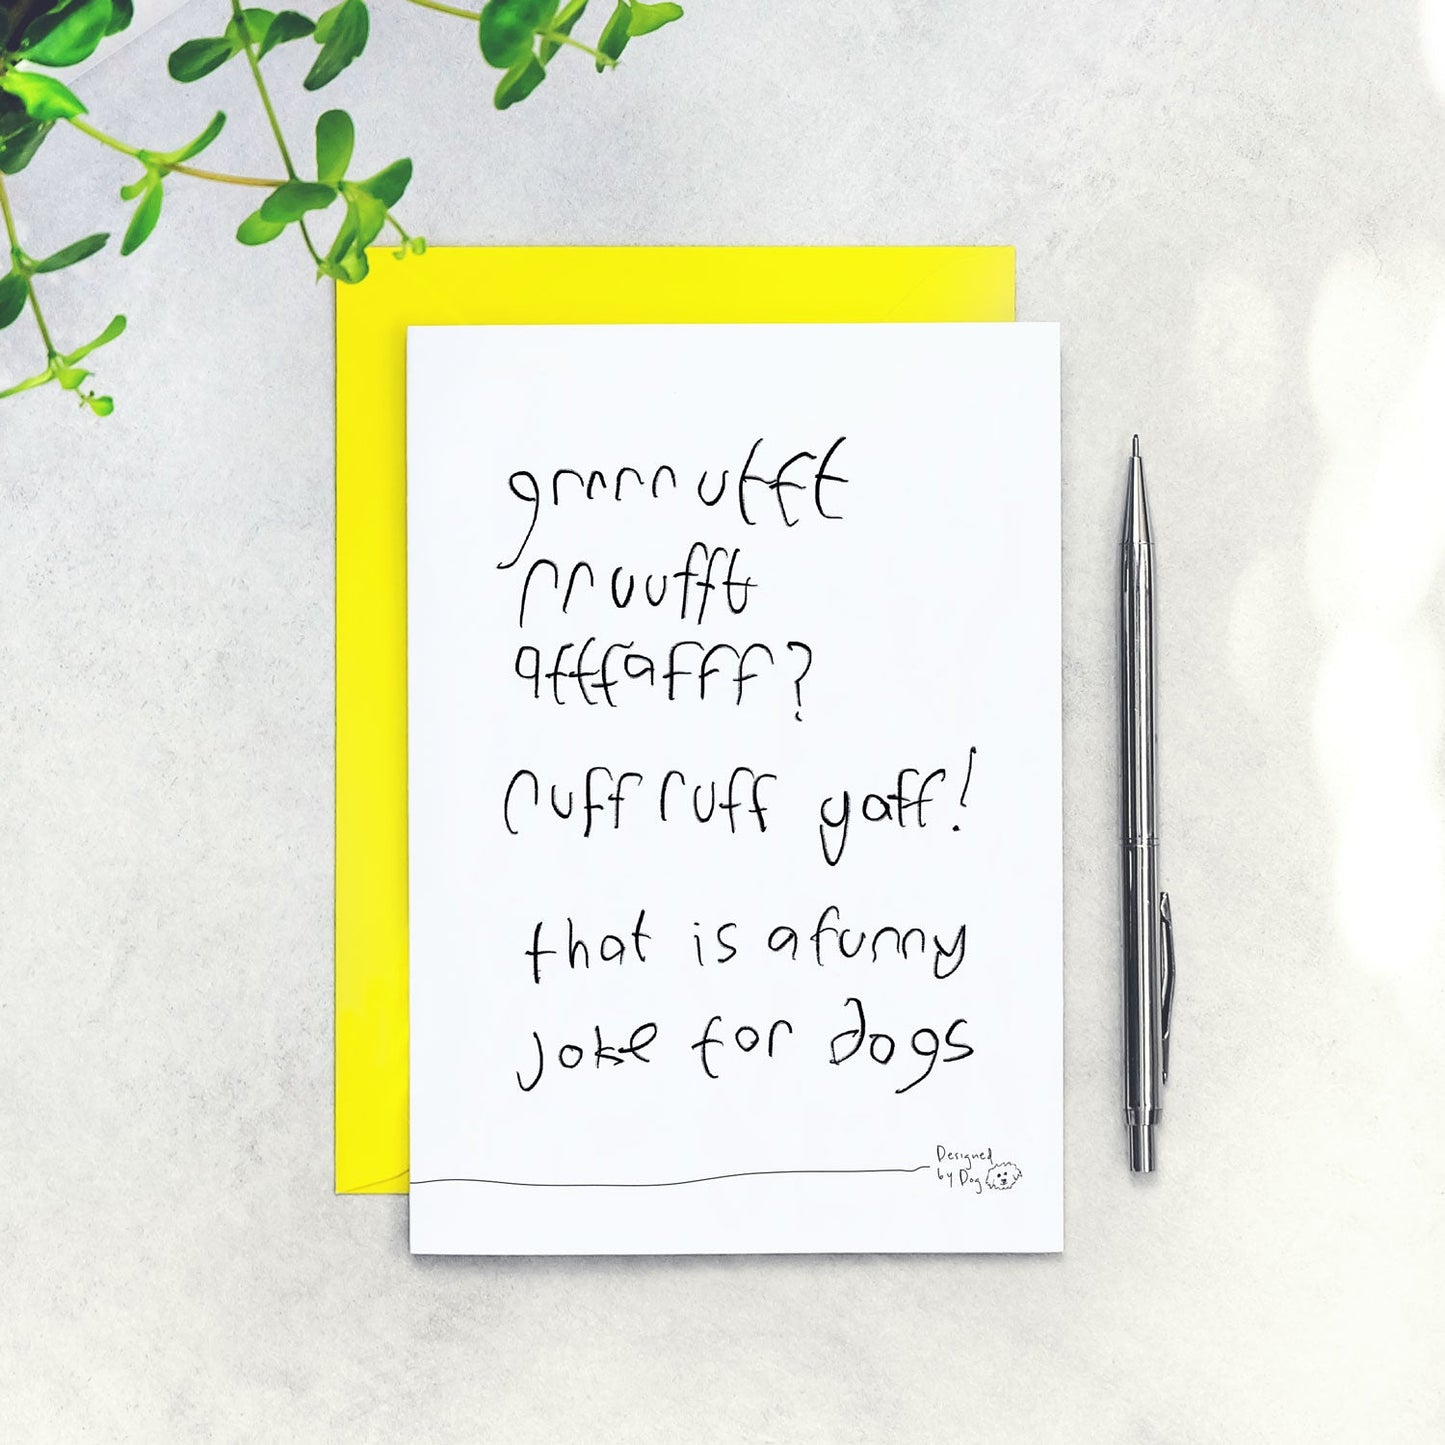 grrrrufft
rruufft
afffafff?
ruff ruff yaff!
that is a funny
joke for dogs
Designed
by Dog